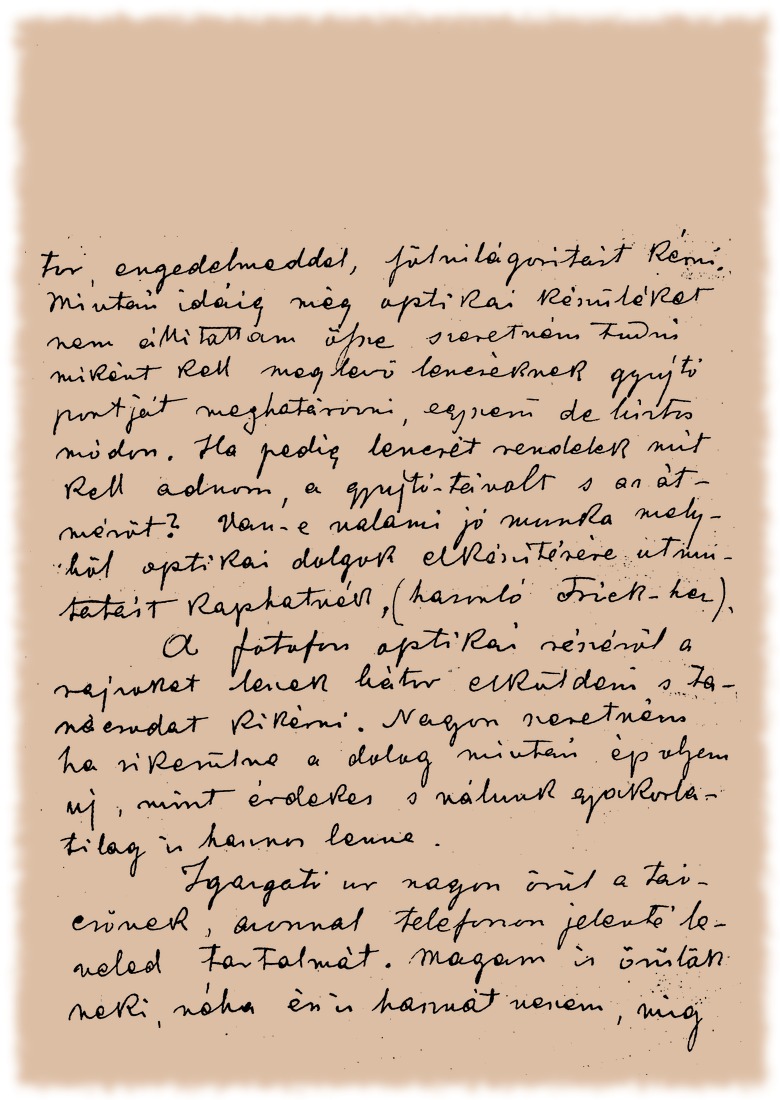 tor, engedelmeddel, fölvilágositást kérni.
Miután idáig még optikai készüléket
nem állitottam össze szeretném tudni
miként kell meglevő lencséknek gyujtó
pontját meghatározni, egyszerü de biztos
módon. Ha pedig lencsét rendelek mit
kell adnom, a gyujtó-távolt s az át-
mérőt? Van-e valami jó munka mely-
ből optikai dolgok elkészitésére utmu-
tatást kaphatnék, (hasonló Frick-hez).
A fotofon optikai részéről a
rajzokat leszek bátor elküldeni s ta-
nácsodat kikérni. Nagyon szeretném
ha sikerülne a dolog miután ép olyan
uj, mint érdekes s nálunk gyakorla-
tilag is hasznos lenne.
Igazgató ur nagyon örül a táv-
csőnek, azonnal telefonon jelenté le-
veled tartalmát. Magam is örülök
neki, néha én is hasznát veszem, mig